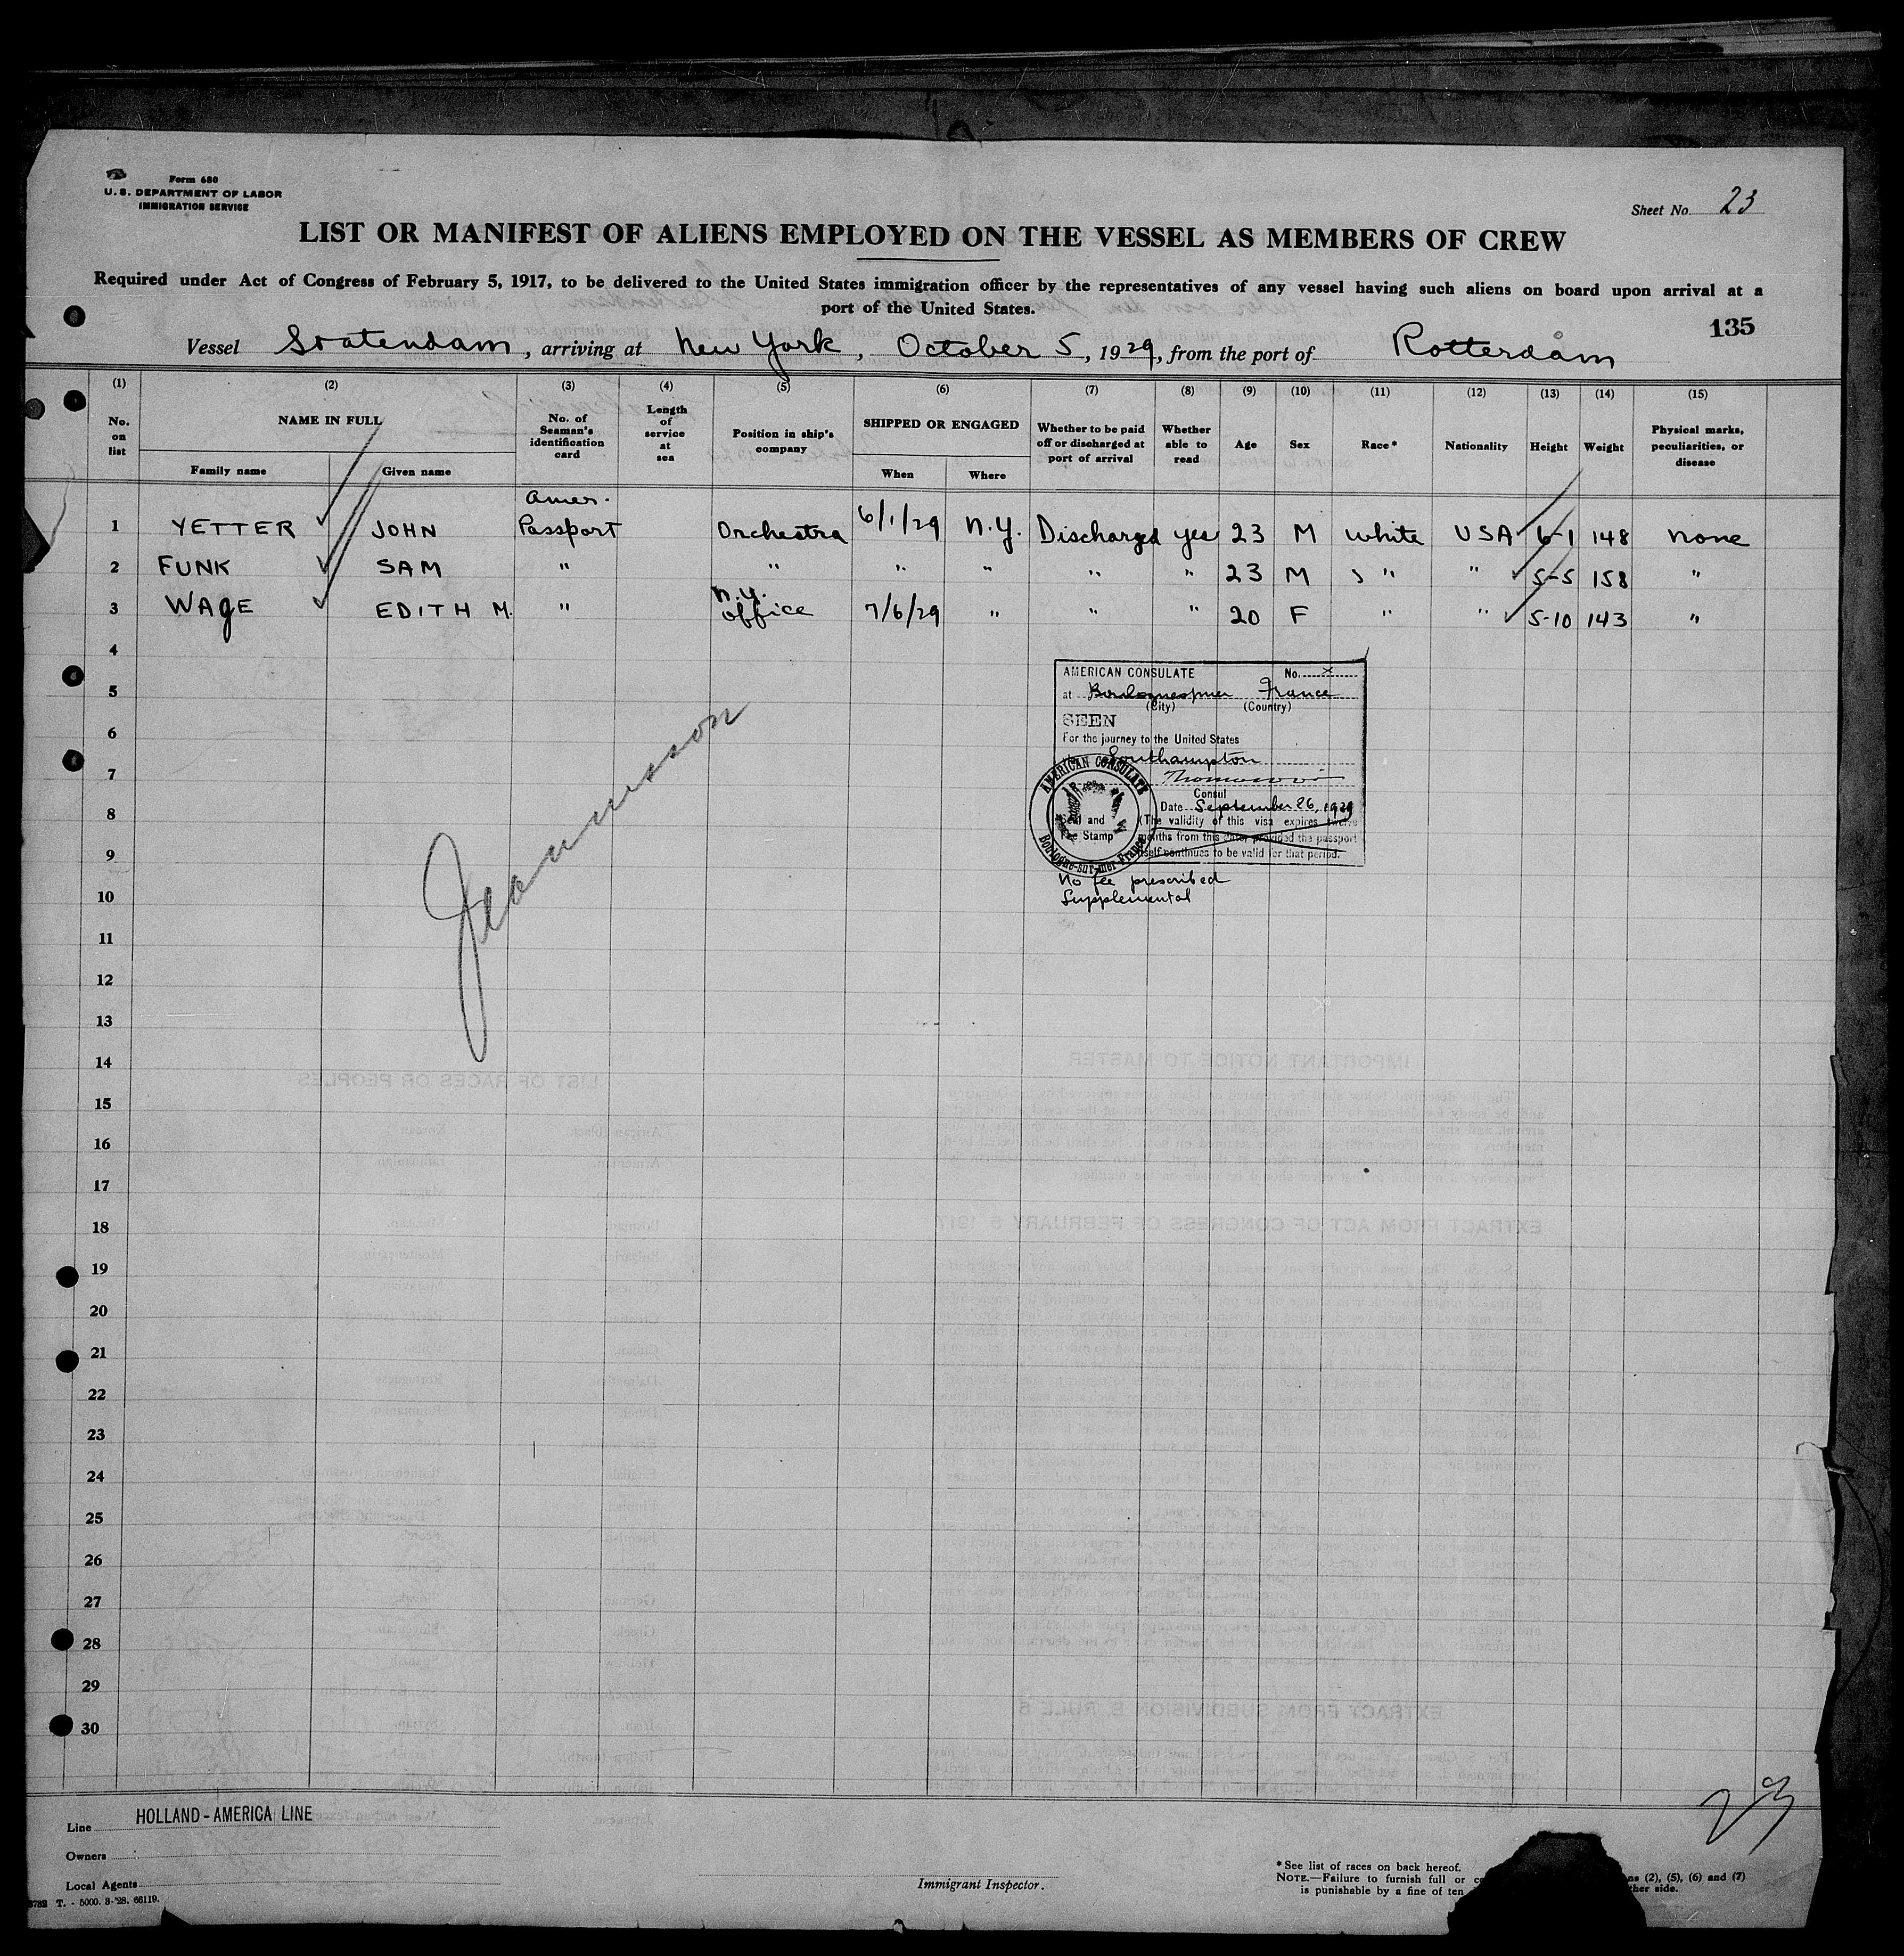 Form 680
U. S. DEPARTMENT OF LABOR
IMMIGRATION SERVICE
Sheet No. 23
LIST OR MANIFEST OF ALIENS EMPLOYED ON THE VESSEL AS MEMBERS OF CREW
Required under Act of Congress of February 5, 1917, to be delivered to the United States immigration officer by the representatives of any vessel having such aliens on board upon arrival at a
port of the United States.
135
Vessel Statendam, arriving at New York, October 5, 1929, from the port of Rotterdam
(1) (2) (3) (4) (5) (6) (7) (8) (9) (10) (11) (12) (13) (14) (15)
No. on list
NAME IN FULL
Family name Given name
No. of Seaman's identification card
Length of service at sea
Position in ship's company
SHIPPED OR ENGAGED
When Where
Whether to be paid off or discharged at port of arrival
Whether able to read
Age Sex Race* Nationality Height Weight
Physical marks, peculiarities, or disease
Amer.
1 YETTER JOHN Passport Orchestra 6/1/29 N.Y. Discharged yes 23 M white USA 6-1 148 none
2 FUNK SAM " " " " " " 23 M " " 5-5 158 "
3 WAgE EDITH M. " N.Y. office 7/6/29 " " " 20 F " " 5-10 143 "
4
5
6
7
8
9
10
11
12
13
14
15
16
17
18
19
20
21
22
23
24
25
26
27
28
29
30
AMERICAN CONSULATE No. x
at Boulognesmer France
(City) (Country)
SEEN
For the journey to the United States
Southampton
Consul
Date September 26, 1929
(The validity of this visa expires twelve
months from this date, provided the passport
itself continues to be valid for that period.
AMERICAN CONSULATE
Boulogne-sur-mer France
Seal and
Fee Stamp
No fee prescribed
Supplemental
Line HOLLAND-AMERICA LINE
Owners
Local Agents
T. - 5000. 3-'28. 66119.
Immigrant Inspector.
23
*See list of races on back hereof.
NOTE.—Failure to furnish full or
ns (2), (5), (6) and (7)
is punishable by a fine of ten
ther side.